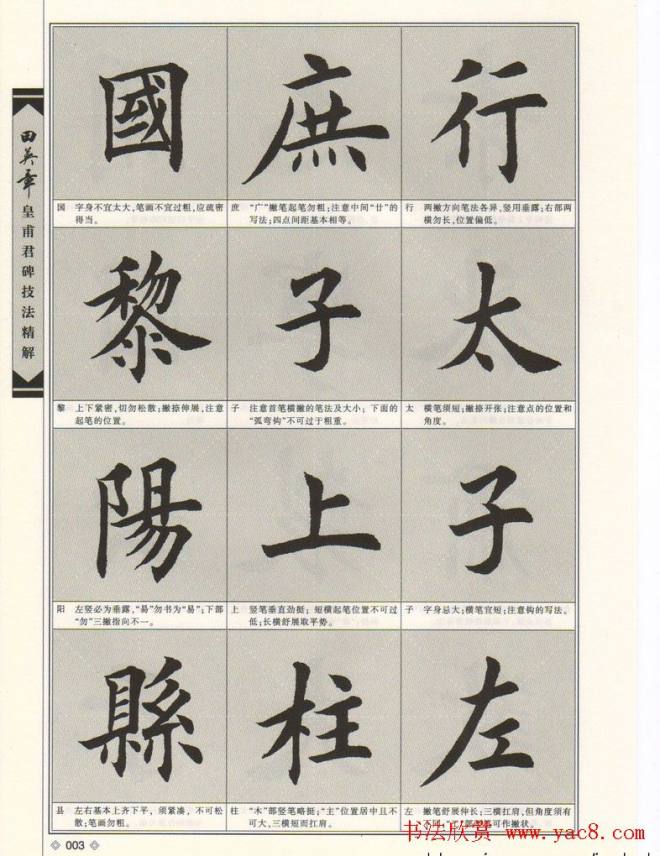 田英章
皇甫君碑技法精解
行
行 两撇方向笔法各异,竖用垂露;右部两
横勿长,位置偏低。
太
太 横笔须短;撇捺开张;注意点的位置和
角度。
子
子 字身忌大;横笔宜短;注意钩的写法。
左
左 撇笔舒展伸长;三横扛肩,但角度须有
不同。可作撇状。
庶
庶 “广”撇笔起笔勿粗;注意中间“廿”的
写法;四点间距基本相等。
子
子 注意首笔横撇的笔法及大小;下面的
“弧弯钩”不可过于粗重。
上
上 竖笔垂直劲挺;短横起笔位置不可过
低;长横舒展取平势。
柱
柱 “木”部竖笔略挺;“主”位置居中且不
可大,三横短而扛肩。
國
国 字身不宜太大,笔画不宜过粗,应疏密
得当。
黎
黎 上下紧密,切勿松散;撇捺伸展,注意
起笔的位置。
陽
阳 左竖必为垂露,“易”勿书为“易”;下部
“勿”三撇指向不一。
縣
县 左右基本上齐下平,须紧凑,不可松
散;笔画勿粗。
003
书法欣赏 www.yac8.com